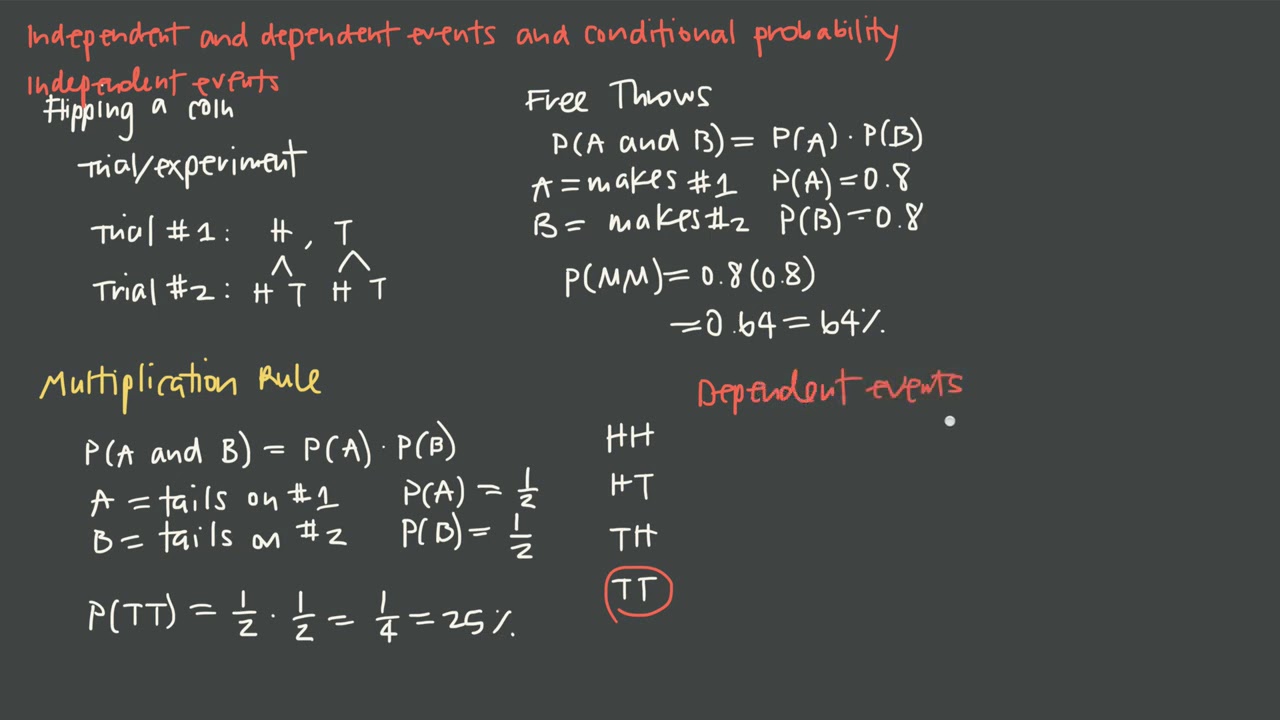 Independent and dependent events and conditional probability
Independent events
Flipping a coin
Trial/experiment
Trial #1: H, T
Trial #2: H T H T
Free Throws
P(A and B) = P(A) · P(B)
A = makes #1 P(A) = 0.8
B = makes #2 P(B) = 0.8
P(MM) = 0.8(0.8)
= 0.64 = 64%
Multiplication Rule
P(A and B) = P(A) · P(B)
A = tails on #1 P(A) = 1/2
B = tails on #2 P(B) = 1/2
P(TT) = 1/2 · 1/2 = 1/4 = 25%
HH
HT
TH
TT
Dependent events